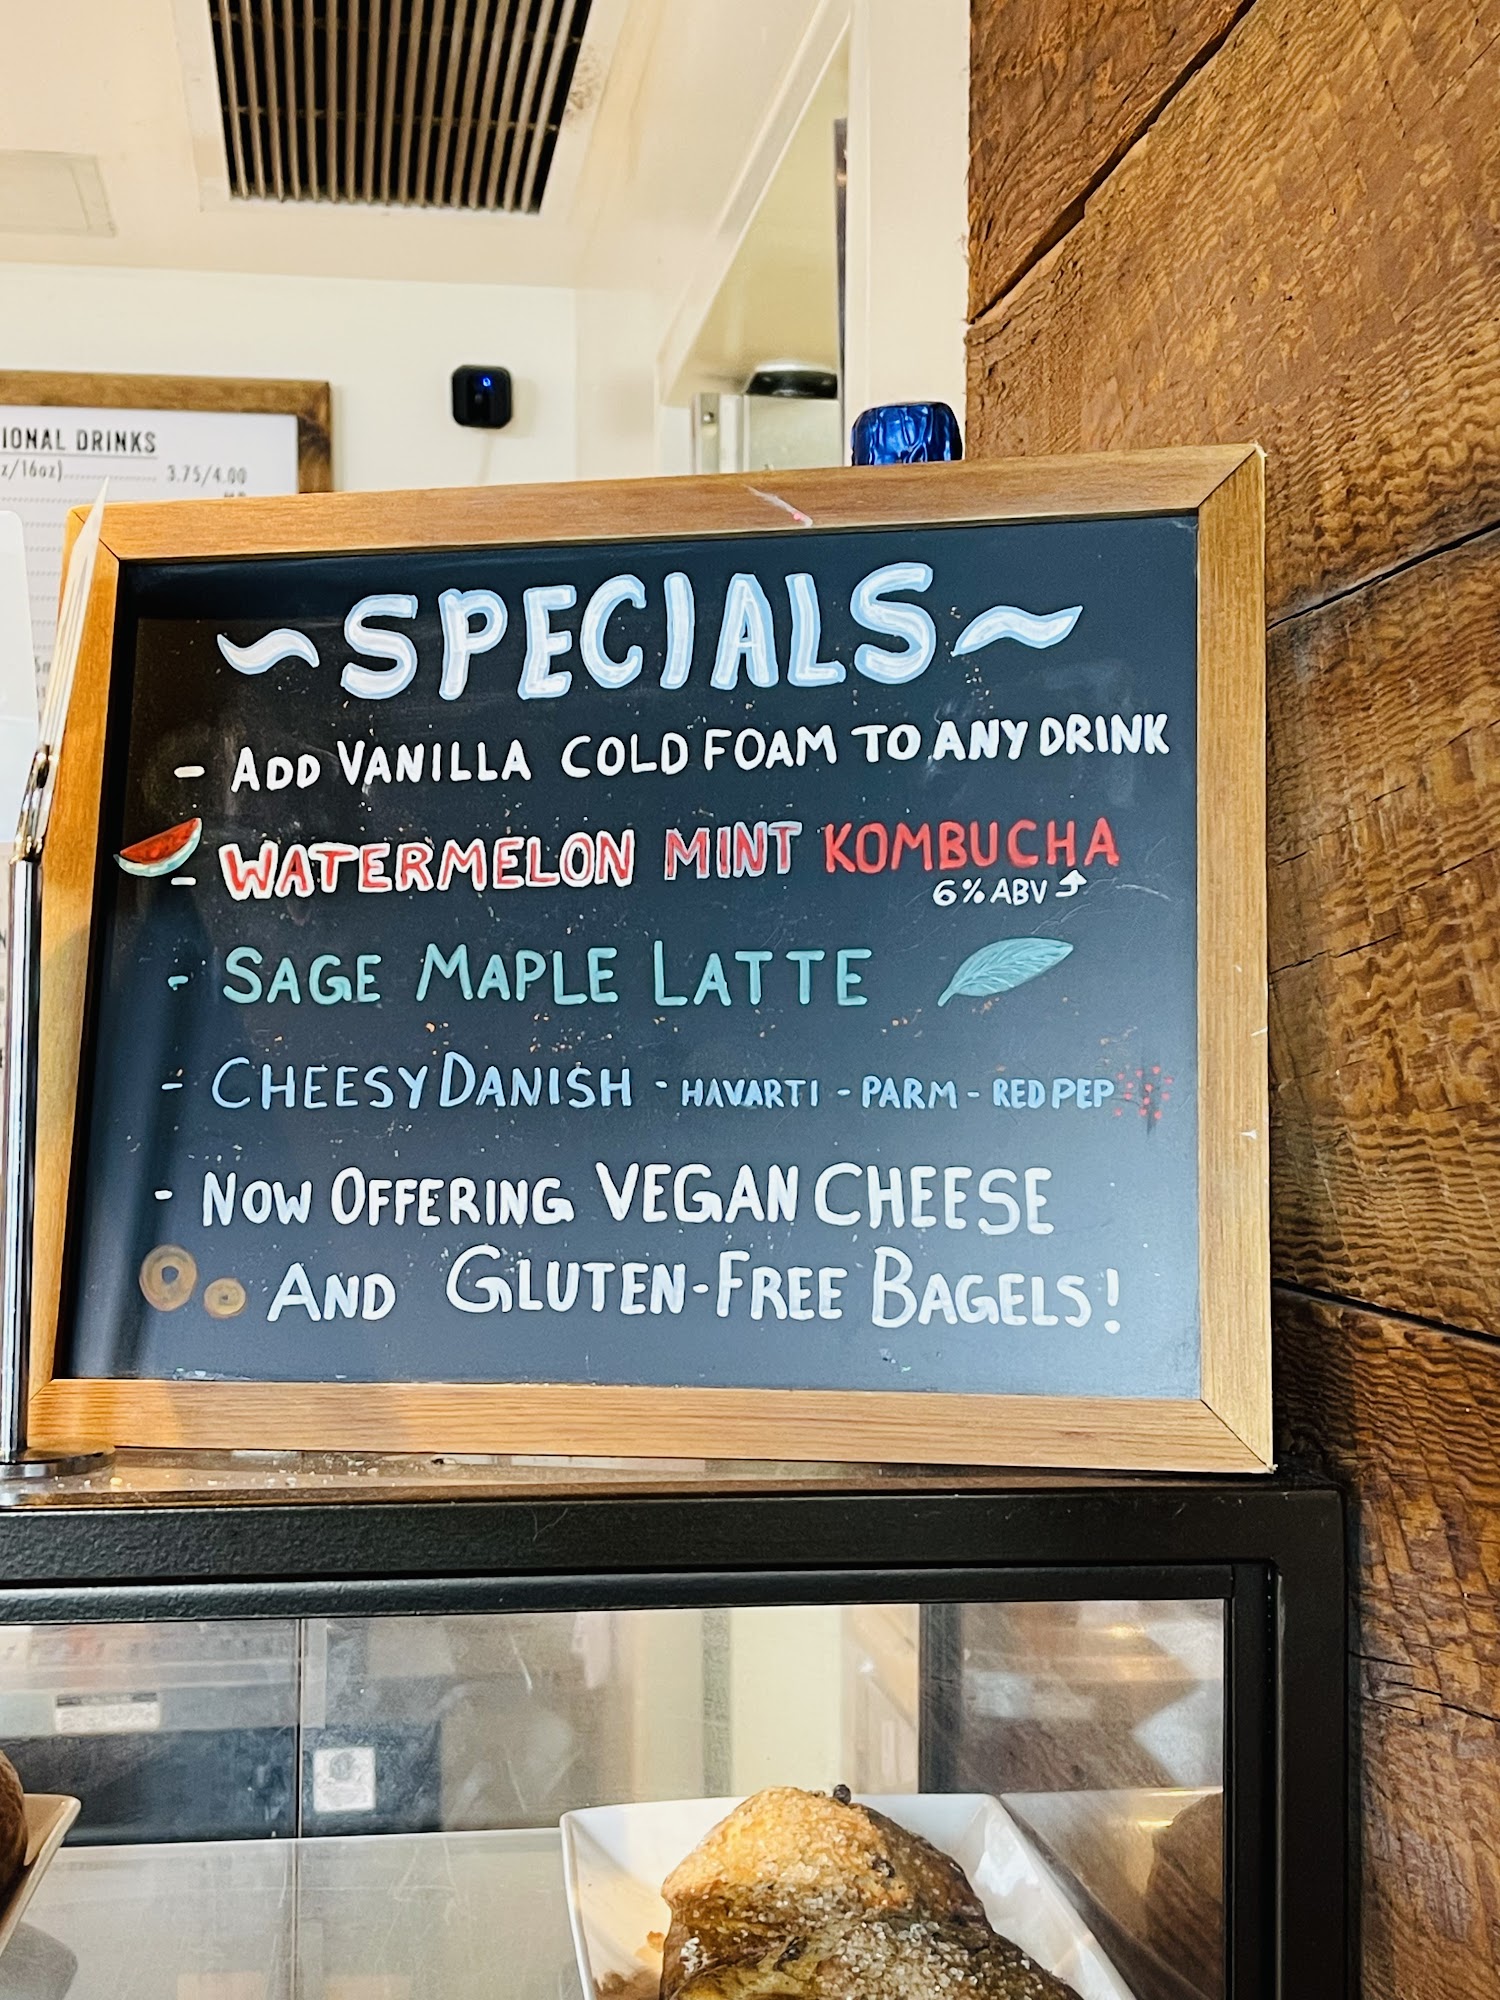 IONAL DRINKS
z/16oz) 3.75/4.00
~SPECIALS~
- ADD VANILLA COLD FOAM TO ANY DRINK
- WATERMELON MINT KOMBUCHA
6% ABV
- SAGE MAPLE LATTE
- CHEESY DANISH - HAVARTI - PARM - RED PEP
- NOW OFFERING VEGAN CHEESE
AND GLUTEN-FREE BAGELS!